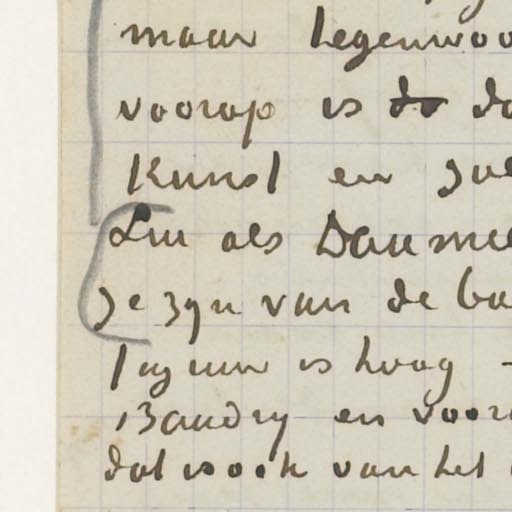 maar tegenwoo
voorop is do do
Kunst en
Lui als Daumie
ze zyn van de ba
is hoog –
Baudry en voor
dat is ook van het